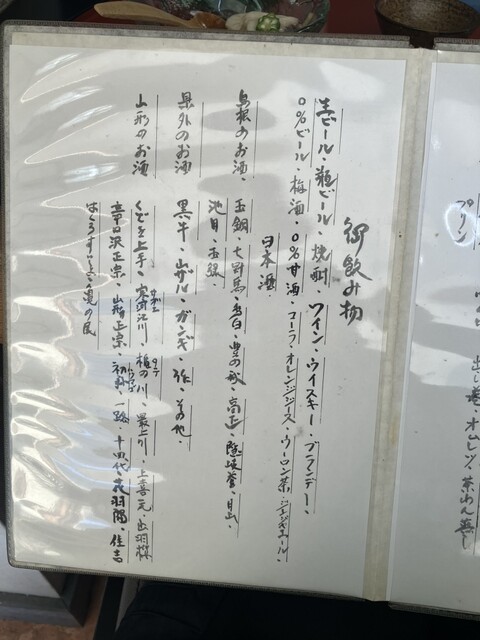 プリン
出し巻・オムレツ・茶わん蒸し
御飲み物
生ビール・瓶ビール・焼酎・ワイン・ウイスキー・ブランデー・
0%ビール・梅酒・0%甘酒・コーラ・オレンジジュース・ウーロン茶・ジンジャエール・
日本酒
島根のお酒・玉鋼・七冠馬・月山・豊の秋・高正・隠岐誉・月山・
池月・玉鋼・
県外のお酒 黒牛・山ザル・ガンギ・張・その他・
山形のお酒 くどき上手・寒河江川・楯の川・最上川・上喜元・出羽桜
辛口沢正宗・山形正宗・初孫・一路・十四代・羽陽・住吉
はくろすいしゅ・亀の民